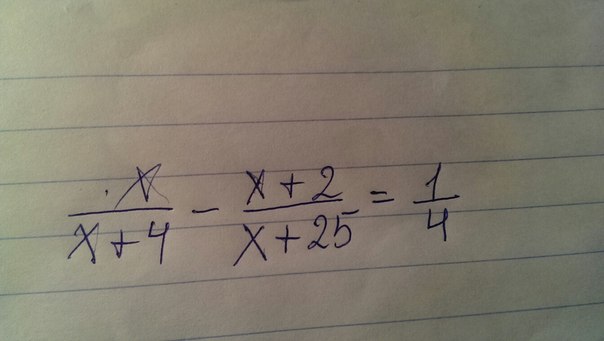 x/(x+4) - (x+2)/(x+25) = 1/4